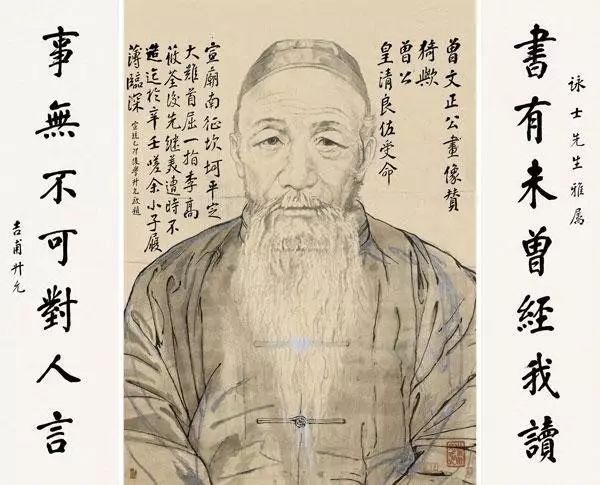 詠士先生雅属
書有未曾經我讀
曾文正公畫像贊
猗歟
曾公
皇清良佐受命
宣廟南征坎坷平定
大難首屈一指李高
筱荃後先繼美遭時不
造迄於辛壬嗟余小子履
薄臨深
宣統乙後學升允敬題
事無不可對人言
吉甫升允